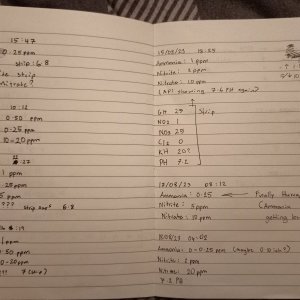 15:47
0.25 ppm
strip: 6.8
strip
Nitrate?
10:12
0.50 ppm
0.25 ppm
10-20 ppm
:27
1 ppm
.25 ppm
5 ppm
??? strip 6.8
:19
1 ppm
.50 ppm
0-20 ppm
?? 7 (strip)
15/08/23 15:25
Ammonia: 1 ppm
Nitrite: 2 ppm
Nitrate: 10 ppm
(API showing 7.6 PH again)
GH 25
Strip
NO2 1
NO3 25
Cl2 0
KH 20?
PH 7.2
17/08/23 08:12
Ammonia: 0.25
Finally there
Nitrite: 5 ppm
(Ammonia
Nitrate: 10 ppm
getting
18/08/23 04:02
Ammonia: 0-0.25 ppm (maybe 0.10 ish?)
Nitrite: 2 ppm
Nitrate: 20 ppm
7.2 PH